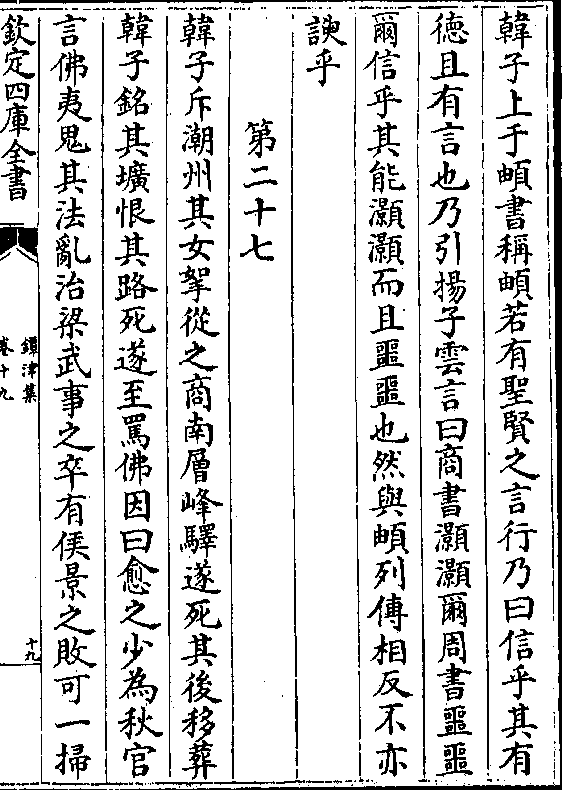 韓子上于頔書稱頔若有聖賢之言行乃曰信乎其有
德且有言也乃引揚子雲言曰商書灝灝爾周書噩噩
爾信乎其能灝灝而且噩噩也然與頔列傳相反不亦
諛乎
第二十七
韓子斥潮州其女挐從之商南層峰驛遂死其後移葬
韓子銘其壙恨其路死遂至罵佛因曰愈之少為秋官
言佛夷鬼其法亂治梁武事之卒有侯景之敗可一掃
欽定四庫全書
鐔津集
卷十九
十九